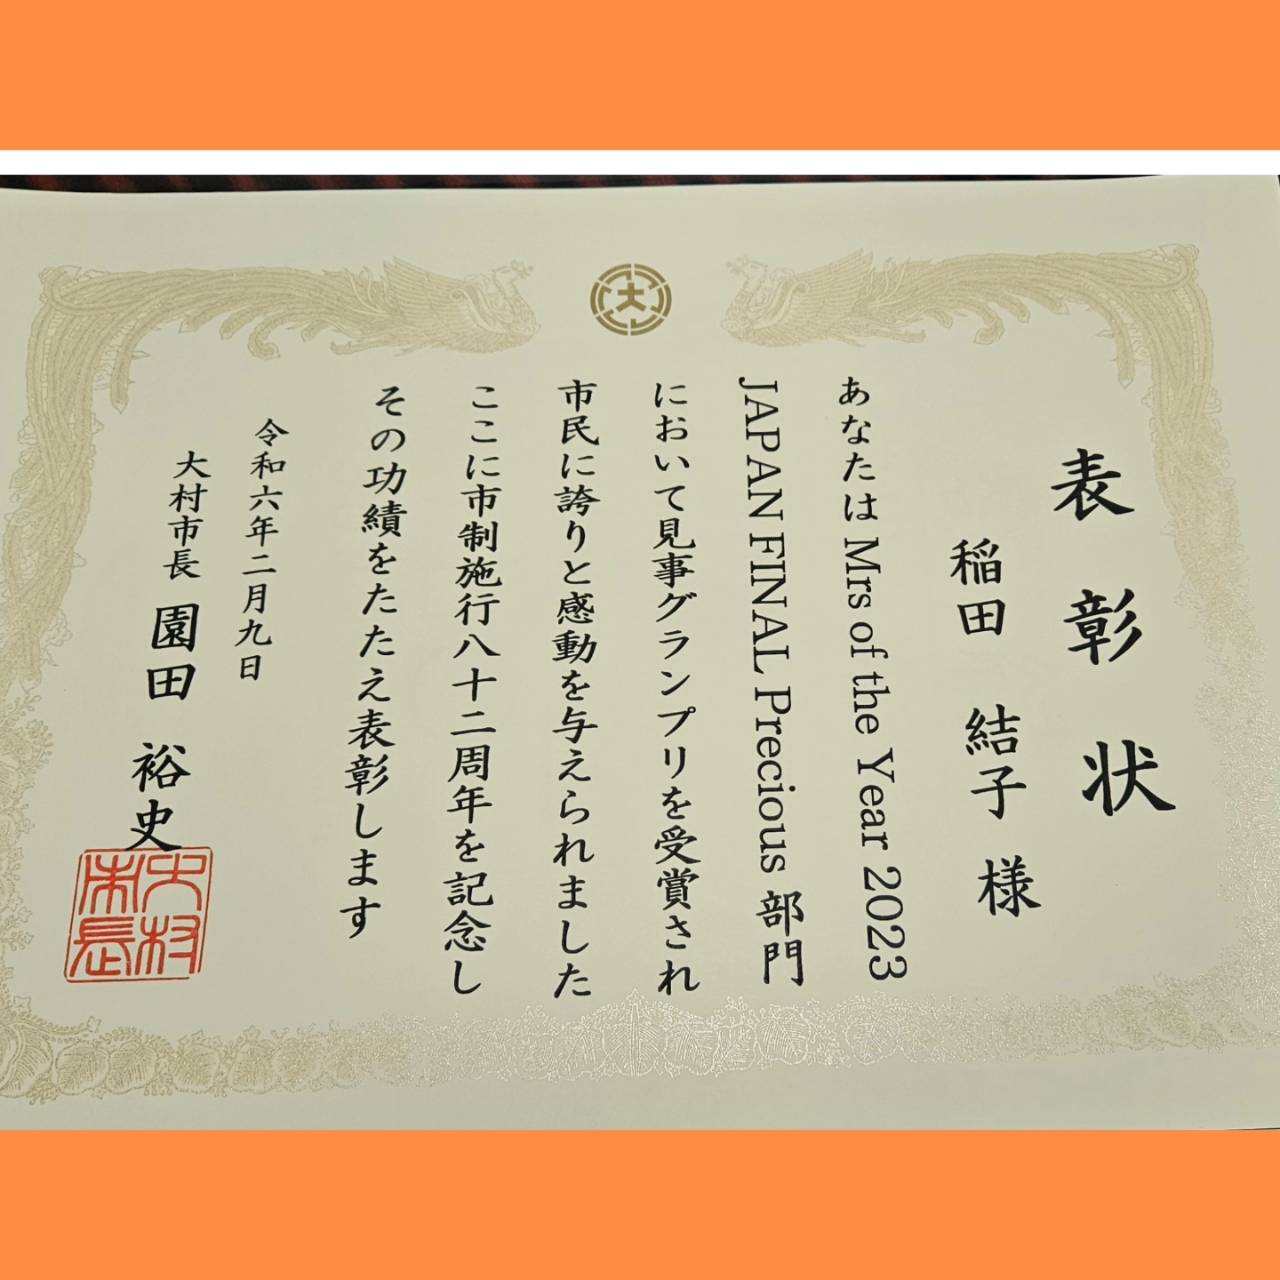 大
表彰状
稲田 結子 様
あなたは Mrs of the Year 2023
JAPAN FINAL Precious 部門
において見事グランプリを受賞され
市民に誇りと感動を与えられました
ここに市制施行八十二周年を記念し
その功績をたたえ表彰します
令和六年二月九日
大村市長 園田 裕史
大村市長